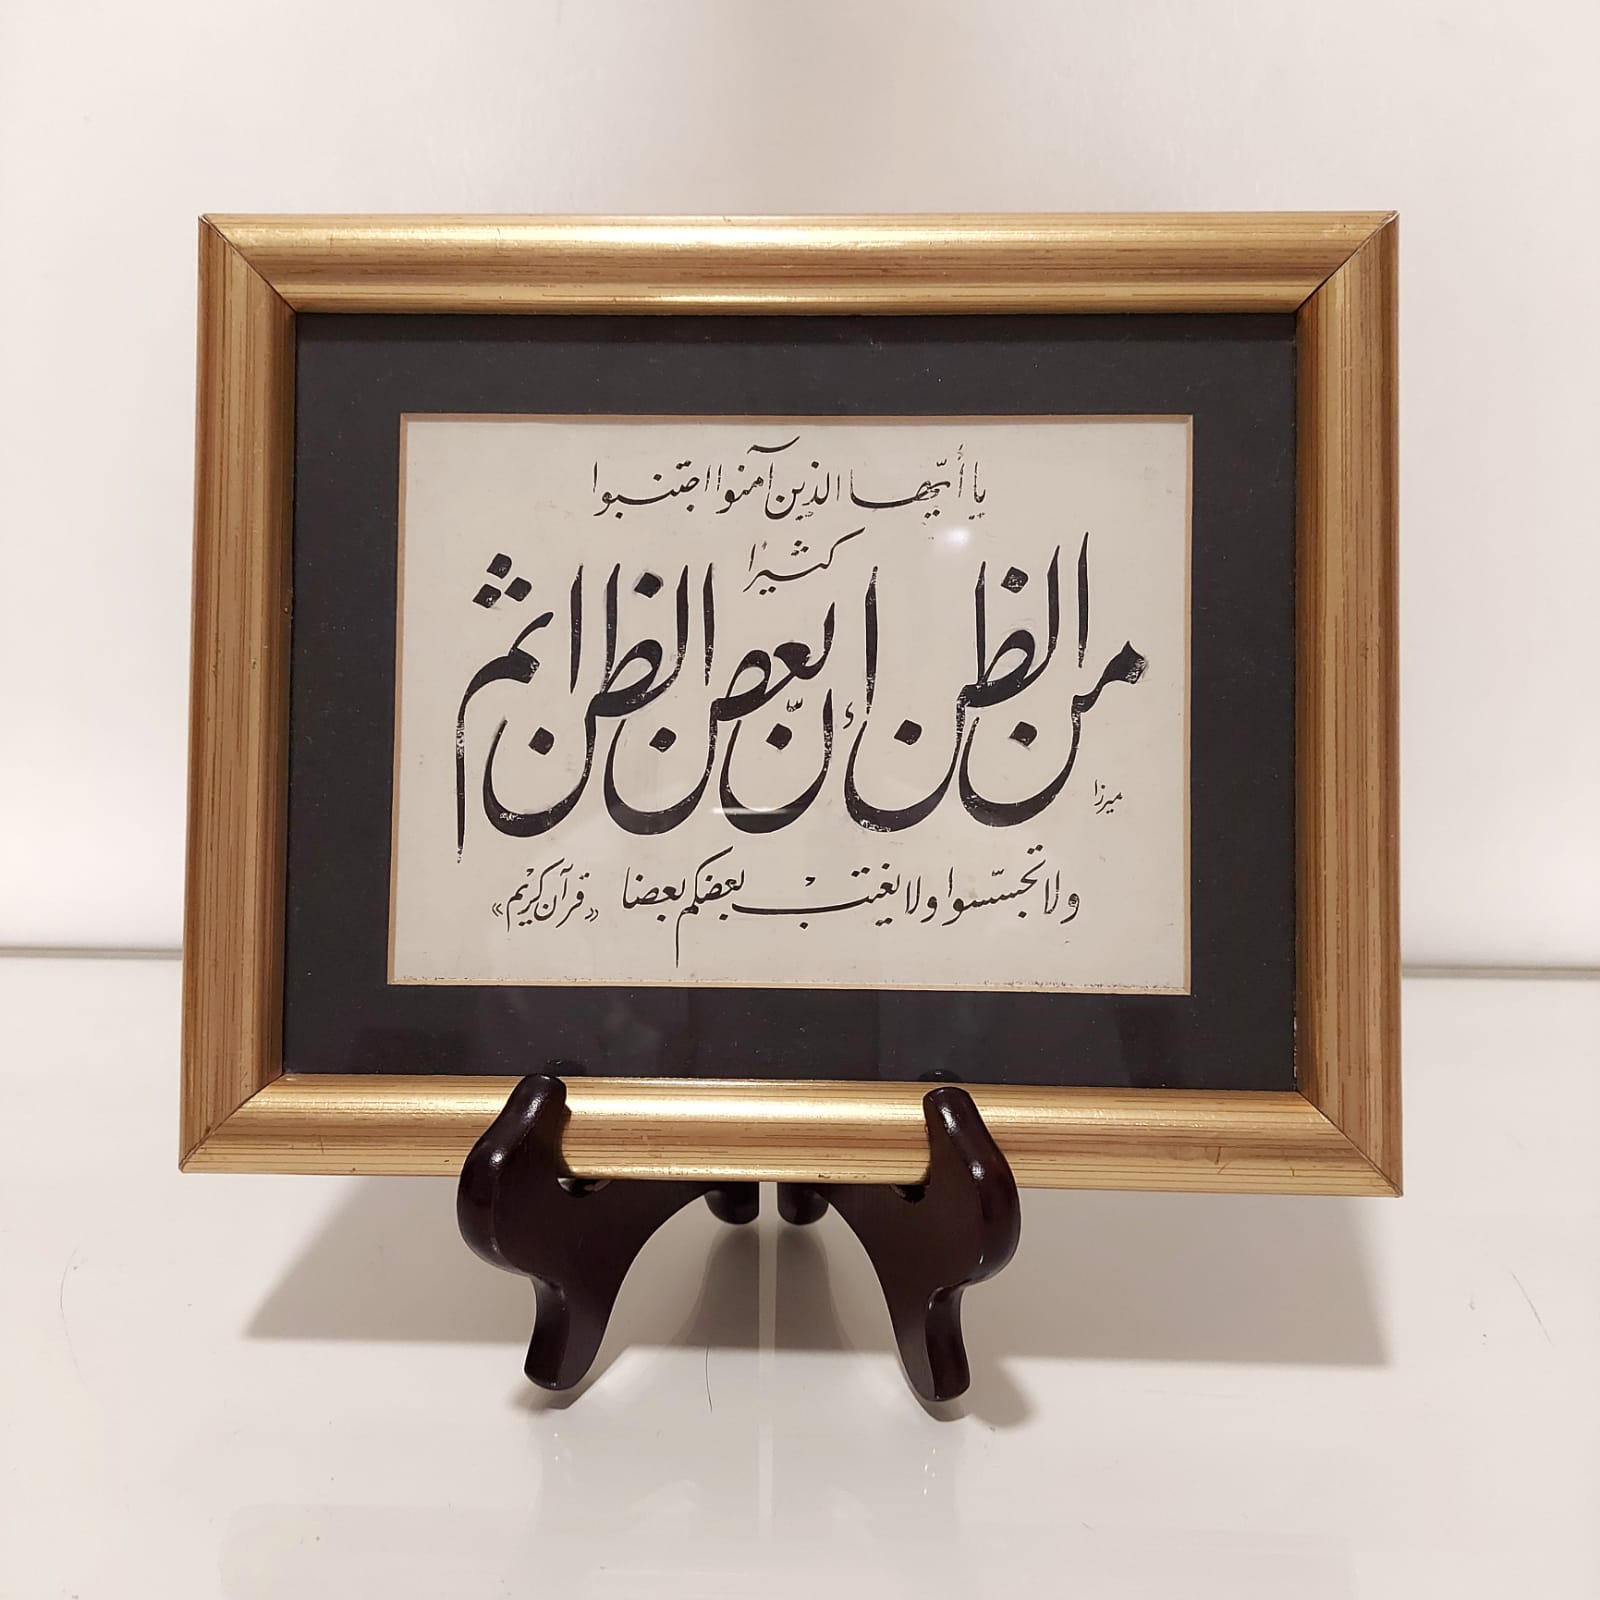 يا أيّها الذين آمنوا اجتنبوا
كثيرًا
من الظن أنّ بعض الظن اثم
ميرزا
ولا تجسّسوا ولا يغتبْ بعضكم بعضا «قرآن كريْم»